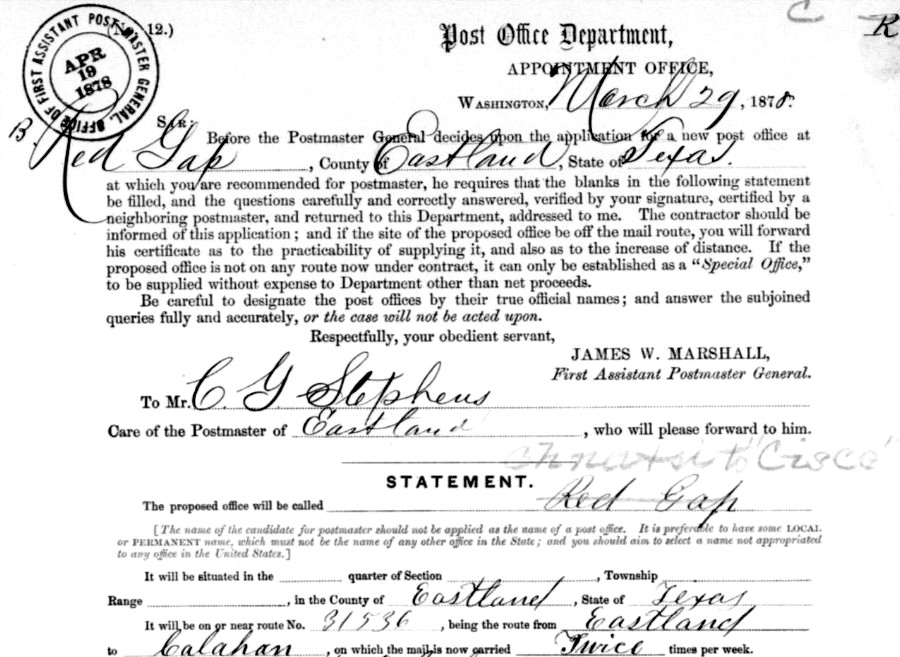 OFFICE OF FIRST ASSISTANT POSTMASTER GENERAL.
APR
19
1878
12.)
C
R
Post Office Department,
APPOINTMENT OFFICE,
WASHINGTON, March 29, 1878.
SIR: Before the Postmaster General decides upon the application for a new post office at
B. Red Gap, County of Eastland, State of Texas.
at which you are recommended for postmaster, he requires that the blanks in the following statement
be filled, and the questions carefully and correctly answered, verified by your signature, certified by a
neighboring postmaster, and returned to this Department, addressed to me. The contractor should be
informed of this application; and if the site of the proposed office be off the mail route, you will forward
his certificate as to the practicability of supplying it, and also as to the increase of distance. If the
proposed office is not on any route now under contract, it can only be established as a "Special Office,"
to be supplied without expense to Department other than net proceeds.
Be careful to designate the post offices by their true official names; and answer the subjoined
queries fully and accurately, or the case will not be acted upon.
Respectfully, your obedient servant,
JAMES W. MARSHALL,
First Assistant Postmaster General.
To Mr. C. G Stephens
Care of the Postmaster of Eastland, who will please forward to him.
to "Cisco"
STATEMENT.
The proposed office will be called Red Gap
[The name of the candidate for postmaster should not be applied as the name of a post office. It is preferable to have some LOCAL
or PERMANENT name, which must not be the name of any other office in the State; and you should aim to select a name not appropriated
to any office in the United States.]
It will be situated in the quarter of Section , Township
Range , in the County of Eastland, State of Texas
It will be on or near route No. 31536, being the route from Eastland
to Calahan, on which the mail is now carried Twice times per week.